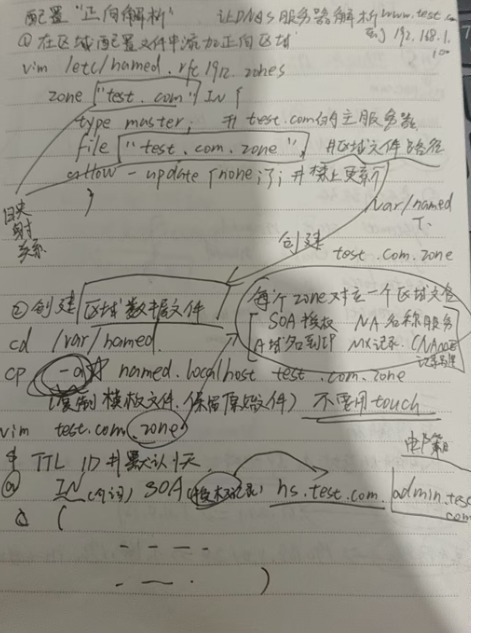 配置"正向解析" 让DNS服务器解析www.test.com
到 192.168.1.100
① 在区域配置文件中添加正向区域
vim /etc/named.rfc1912.zones
zone "test.com" IN {
type master; # test.com的主服务器
file "test.com.zone", #区域文件路径
allow-update {none;}; #禁止更新
}
映射关系
/var/named
下
创建 test.com.zone
② 创建 区域数据文件
每个zone对应一个区域文件
SOA授权 NA名称服务
A域名到IP MX记录
cd /var/named
cp -a named.localhost test.com.zone
(复制模板文件,保留原始文件) 不要用touch
vim test.com.zone
$ TTL 1D #默认1天
邮箱
@ IN SOA hs.test.com. admin.test.com
(
)